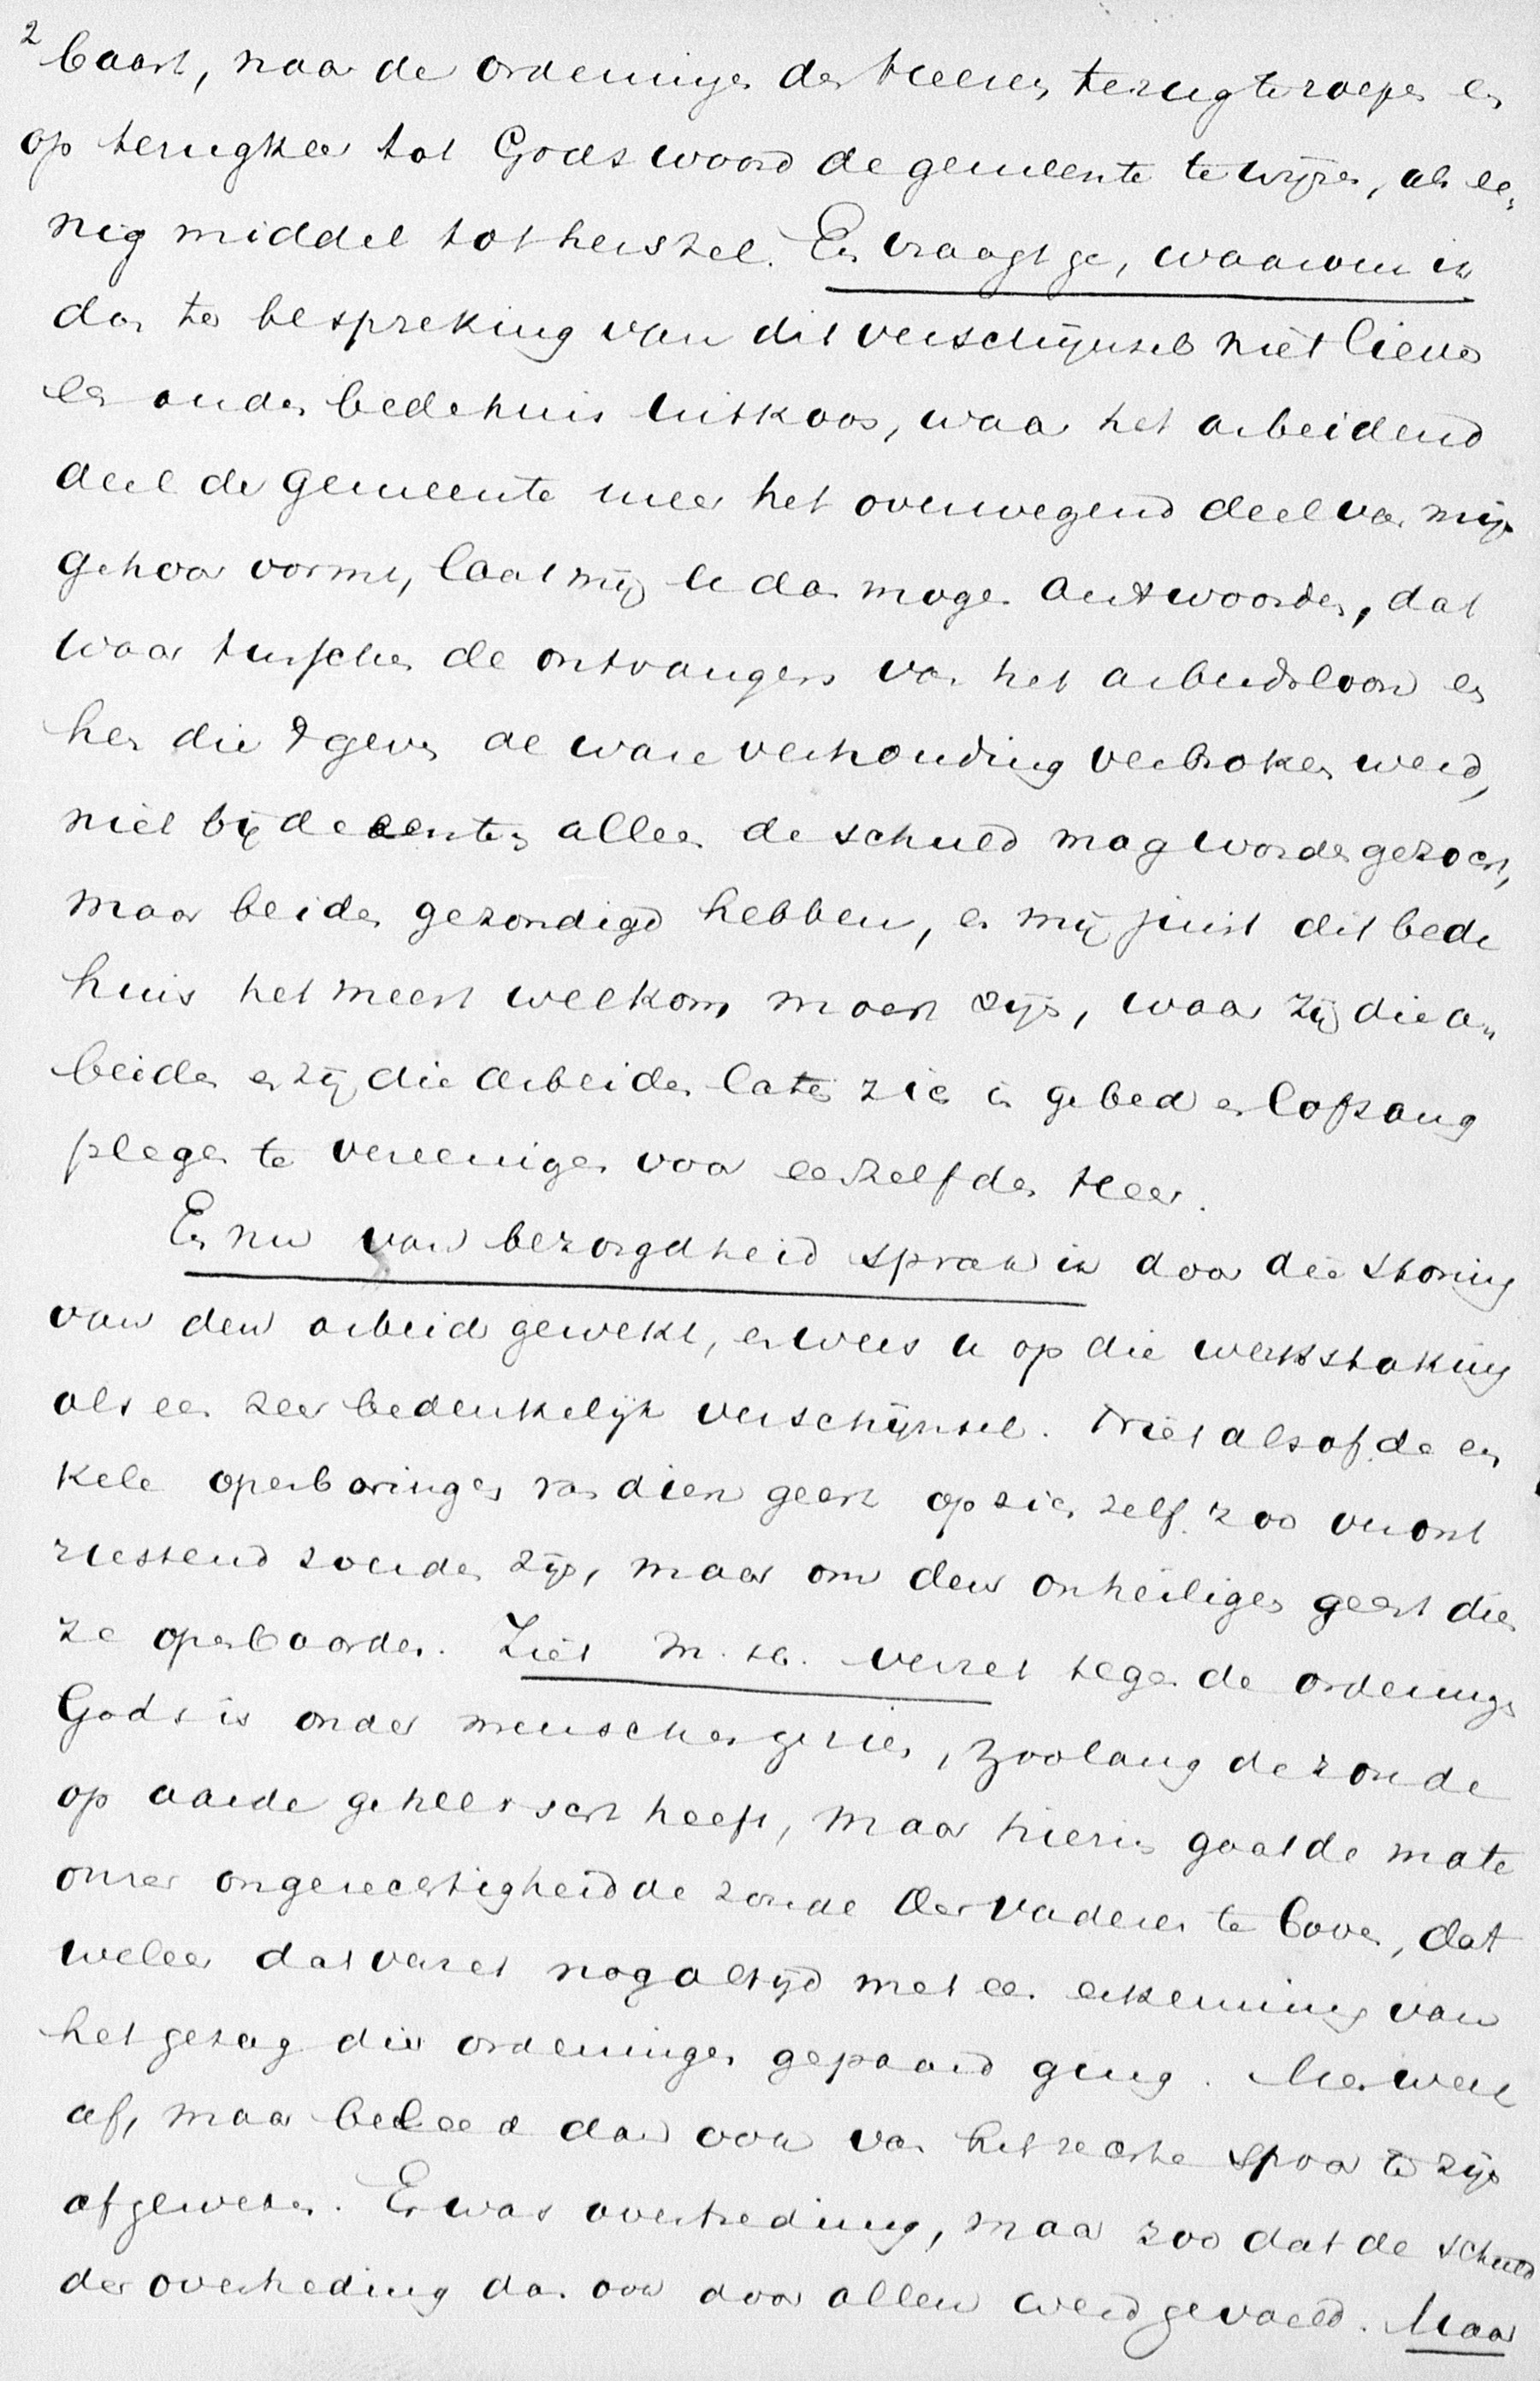 2
baart, naar de ordeningen des Heeren terug te roepen en
op terugkeer tot Gods woord de gemeente te wijzen, als ee-
nig middel tot herstel. En vraagt ge, waarom ik
dan ter bespreking van dit verschijnsel niet liever
een ander bedehuis uitkoos, waar het arbeidend
deel der gemeente meer het overwegend deel van mijn
gehoor vormt, laat mij u dan mogen antwoorden, dat
waar tusschen de ontvangers van het arbeidsloon en
hen die 't geven de ware verhouding verbroken werd,
niet bij de eersten alleen de schuld mag worden gezocht,
maar beiden gezondigd hebben, en mij juist dit bede
huis het meest welkom moest zijn, waar zij die ar-
beiden en zij die arbeiden laten zich in gebed en lofzang
plegen te vereenigen voor eenzelfden Heer.
En nu van bezorgdheid sprak ik door die storing
van den arbeid gewekt, en wees u op die werkstaking
als een zeer bedenkelijk verschijnsel. Niet alsof de en
kele openbaringen van dien geest op zich zelf zoo veront
rustend zouden zijn, maar om den onheiligen geest dien
ze openbaarden. Ziet M. H. verzet tegen de ordeningen
Gods is onder menschen gezien, zoolang de zonde
op aarde geheerscht heeft, maar hierin gaat de mate
onzer ongerechtigheid de zonde der vaderen te boven, dat
weleer dat verzet nog altijd met een erkenning van
het gezag dier ordeningen gepaard ging. Men week
af, maar beleed dan ook van het rechte spoor te zijn
afgeweken. Er was overtreding, maar zoo dat de schuld
der overtreding dan ook door allen werd gevoeld. Maar